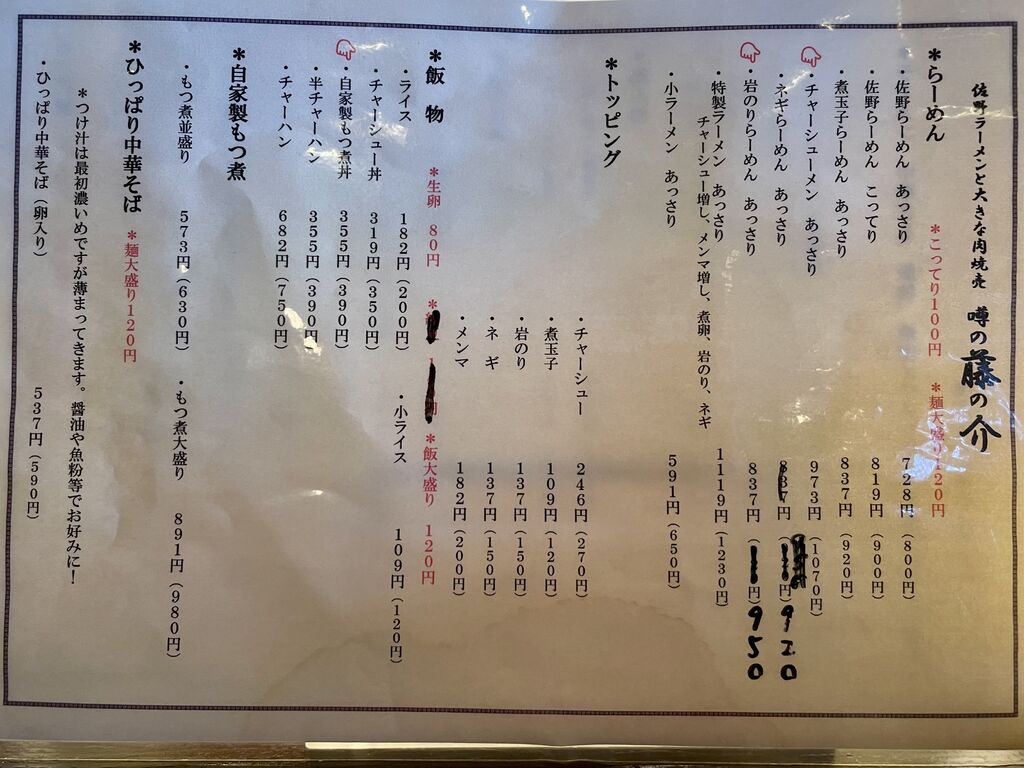 佐野ラーメンと大きな肉焼売 噂の藤の介
＊らーめん ＊こってり100円 ＊麺大盛り120円
・佐野らーめん あっさり 728円（800円）
・佐野らーめん こってり 819円（900円）
・煮玉子らーめん あっさり 837円（920円）
・チャーシューメン あっさり 973円（1070円）
・ネギらーめん あっさり 837円 920
・岩のりらーめん あっさり 837円 950
・特製ラーメン あっさり 1119円（1230円）
チャーシュー増し、メンマ増し、煮卵、岩のり、ネギ
・小ラーメン あっさり 591円（650円）
＊トッピング
・チャーシュー 246円（270円）
・煮玉子 109円（120円）
・岩のり 137円（150円）
・ネギ 137円（150円）
・メンマ 182円（200円）
＊飯物 ＊生卵 80円 ＊飯大盛り 120円
・ライス 182円（200円） ・小ライス 109円（120円）
・チャーシュー丼 319円（350円）
・自家製もつ煮丼 355円（390円）
・半チャーハン 355円（390円）
・チャーハン 682円（750円）
＊自家製もつ煮
・もつ煮並盛り 573円（630円） ・もつ煮大盛り 891円（980円）
＊ひっぱり中華そば ＊麺大盛り120円
＊つけ汁は最初濃いめですが薄まってきます。醤油や魚粉等でお好みに！
・ひっぱり中華そば（卵入り） 537円（590円）